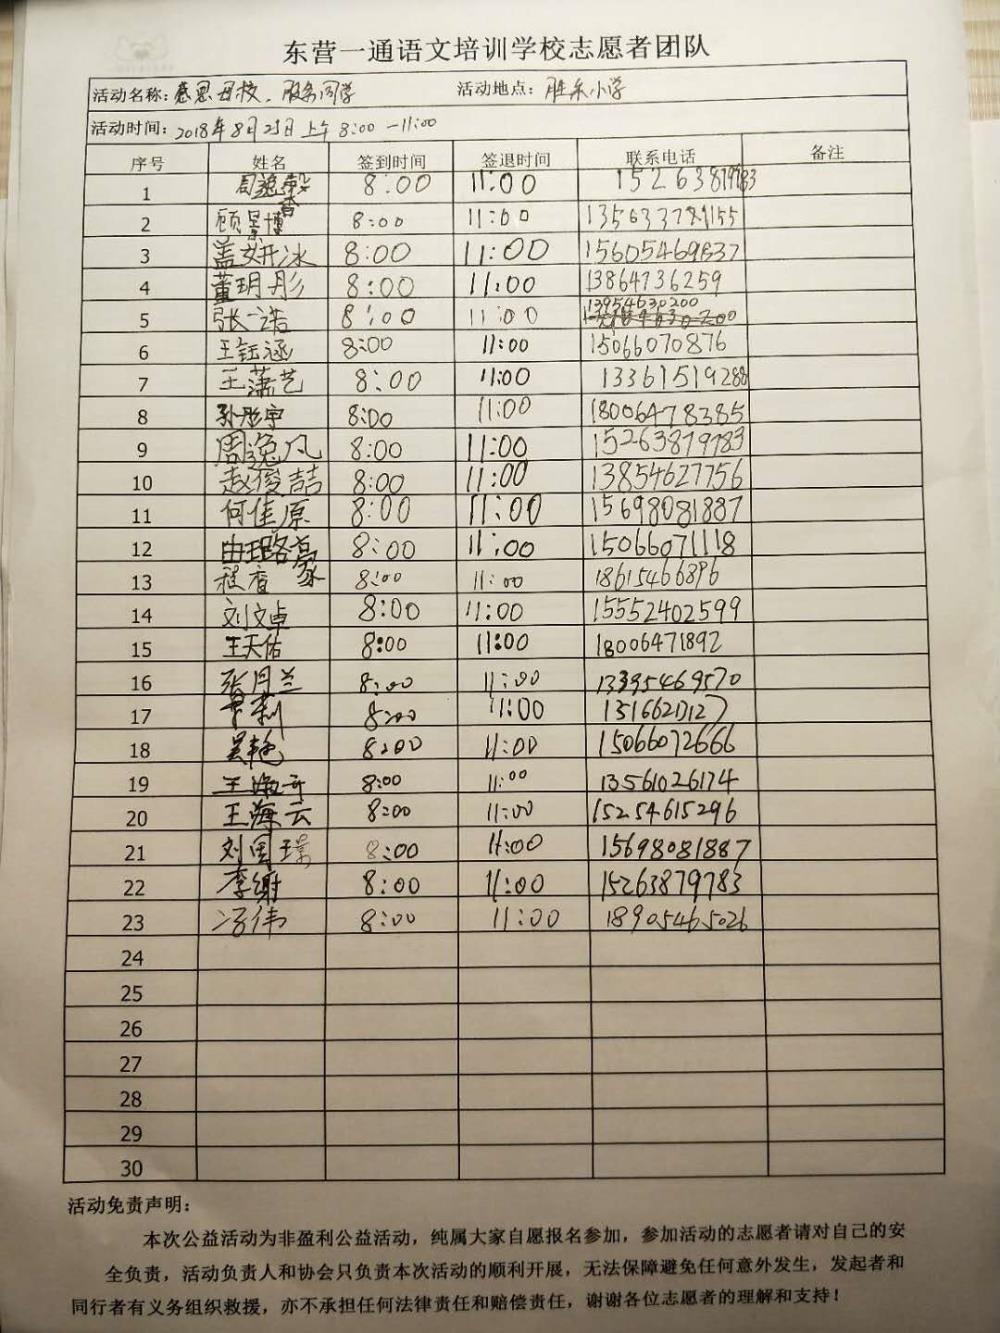 东营一通语文培训学校志愿者团队
活动名称：感恩母校、服务同学 活动地点：胜东小学
活动时间：2018年8月25日上午8:00—11:00
序号 姓名 签到时间 签退时间 联系电话 备注
1 周逸 8:00 11:00 15263879783
2 顾景博 8:00 11:00
3 盖妍冰 8:00 11:00 15605469837
4 董玥彤 8:00 11:00 13864736259
5 张一诺 8:00 11:00 13954630200
6 王钰涵 8:00 11:00 15066070876
7 王潇艺 8:00 11:00 13361519288
8 孙 宇 8:00 11:00 18006478385
9 周逸凡 8:00 11:00 15263879783
10 赵俊喆 8:00 11:00 13854627756
11 何佳原 8:00 11:00 15698081887
12 由珺璐 8:00 11:00 15066071118
13 程杳 8:00 11:00 18615466896
14 刘文卓 8:00 11:00 15552402599
15 王天佑 8:00 11:00 18006471892
16 张月兰 8:00 11:00 13395469570
17 8:00 11:00
18 吴艳 8:00 11:00 15066072666
19 王 8:00 11:00 13561026174
20 王海云 8:00 11:00 15254615296
21 刘周璟 8:00 11:00 15698081887
22 李谢 8:00 11:00 15263879783
23 冯伟 8:00 11:00 18905465026
24
25
26
27
28
29
30
活动免责声明：
本次公益活动为非盈利公益活动，纯属大家自愿报名参加，参加活动的志愿者请对自己的安
全负责，活动负责人和协会只负责本次活动的顺利开展，无法保障避免任何意外发生，发起者和
同行者有义务组织救援，亦不承担任何法律责任和赔偿责任，谢谢各位志愿者的理解和支持！